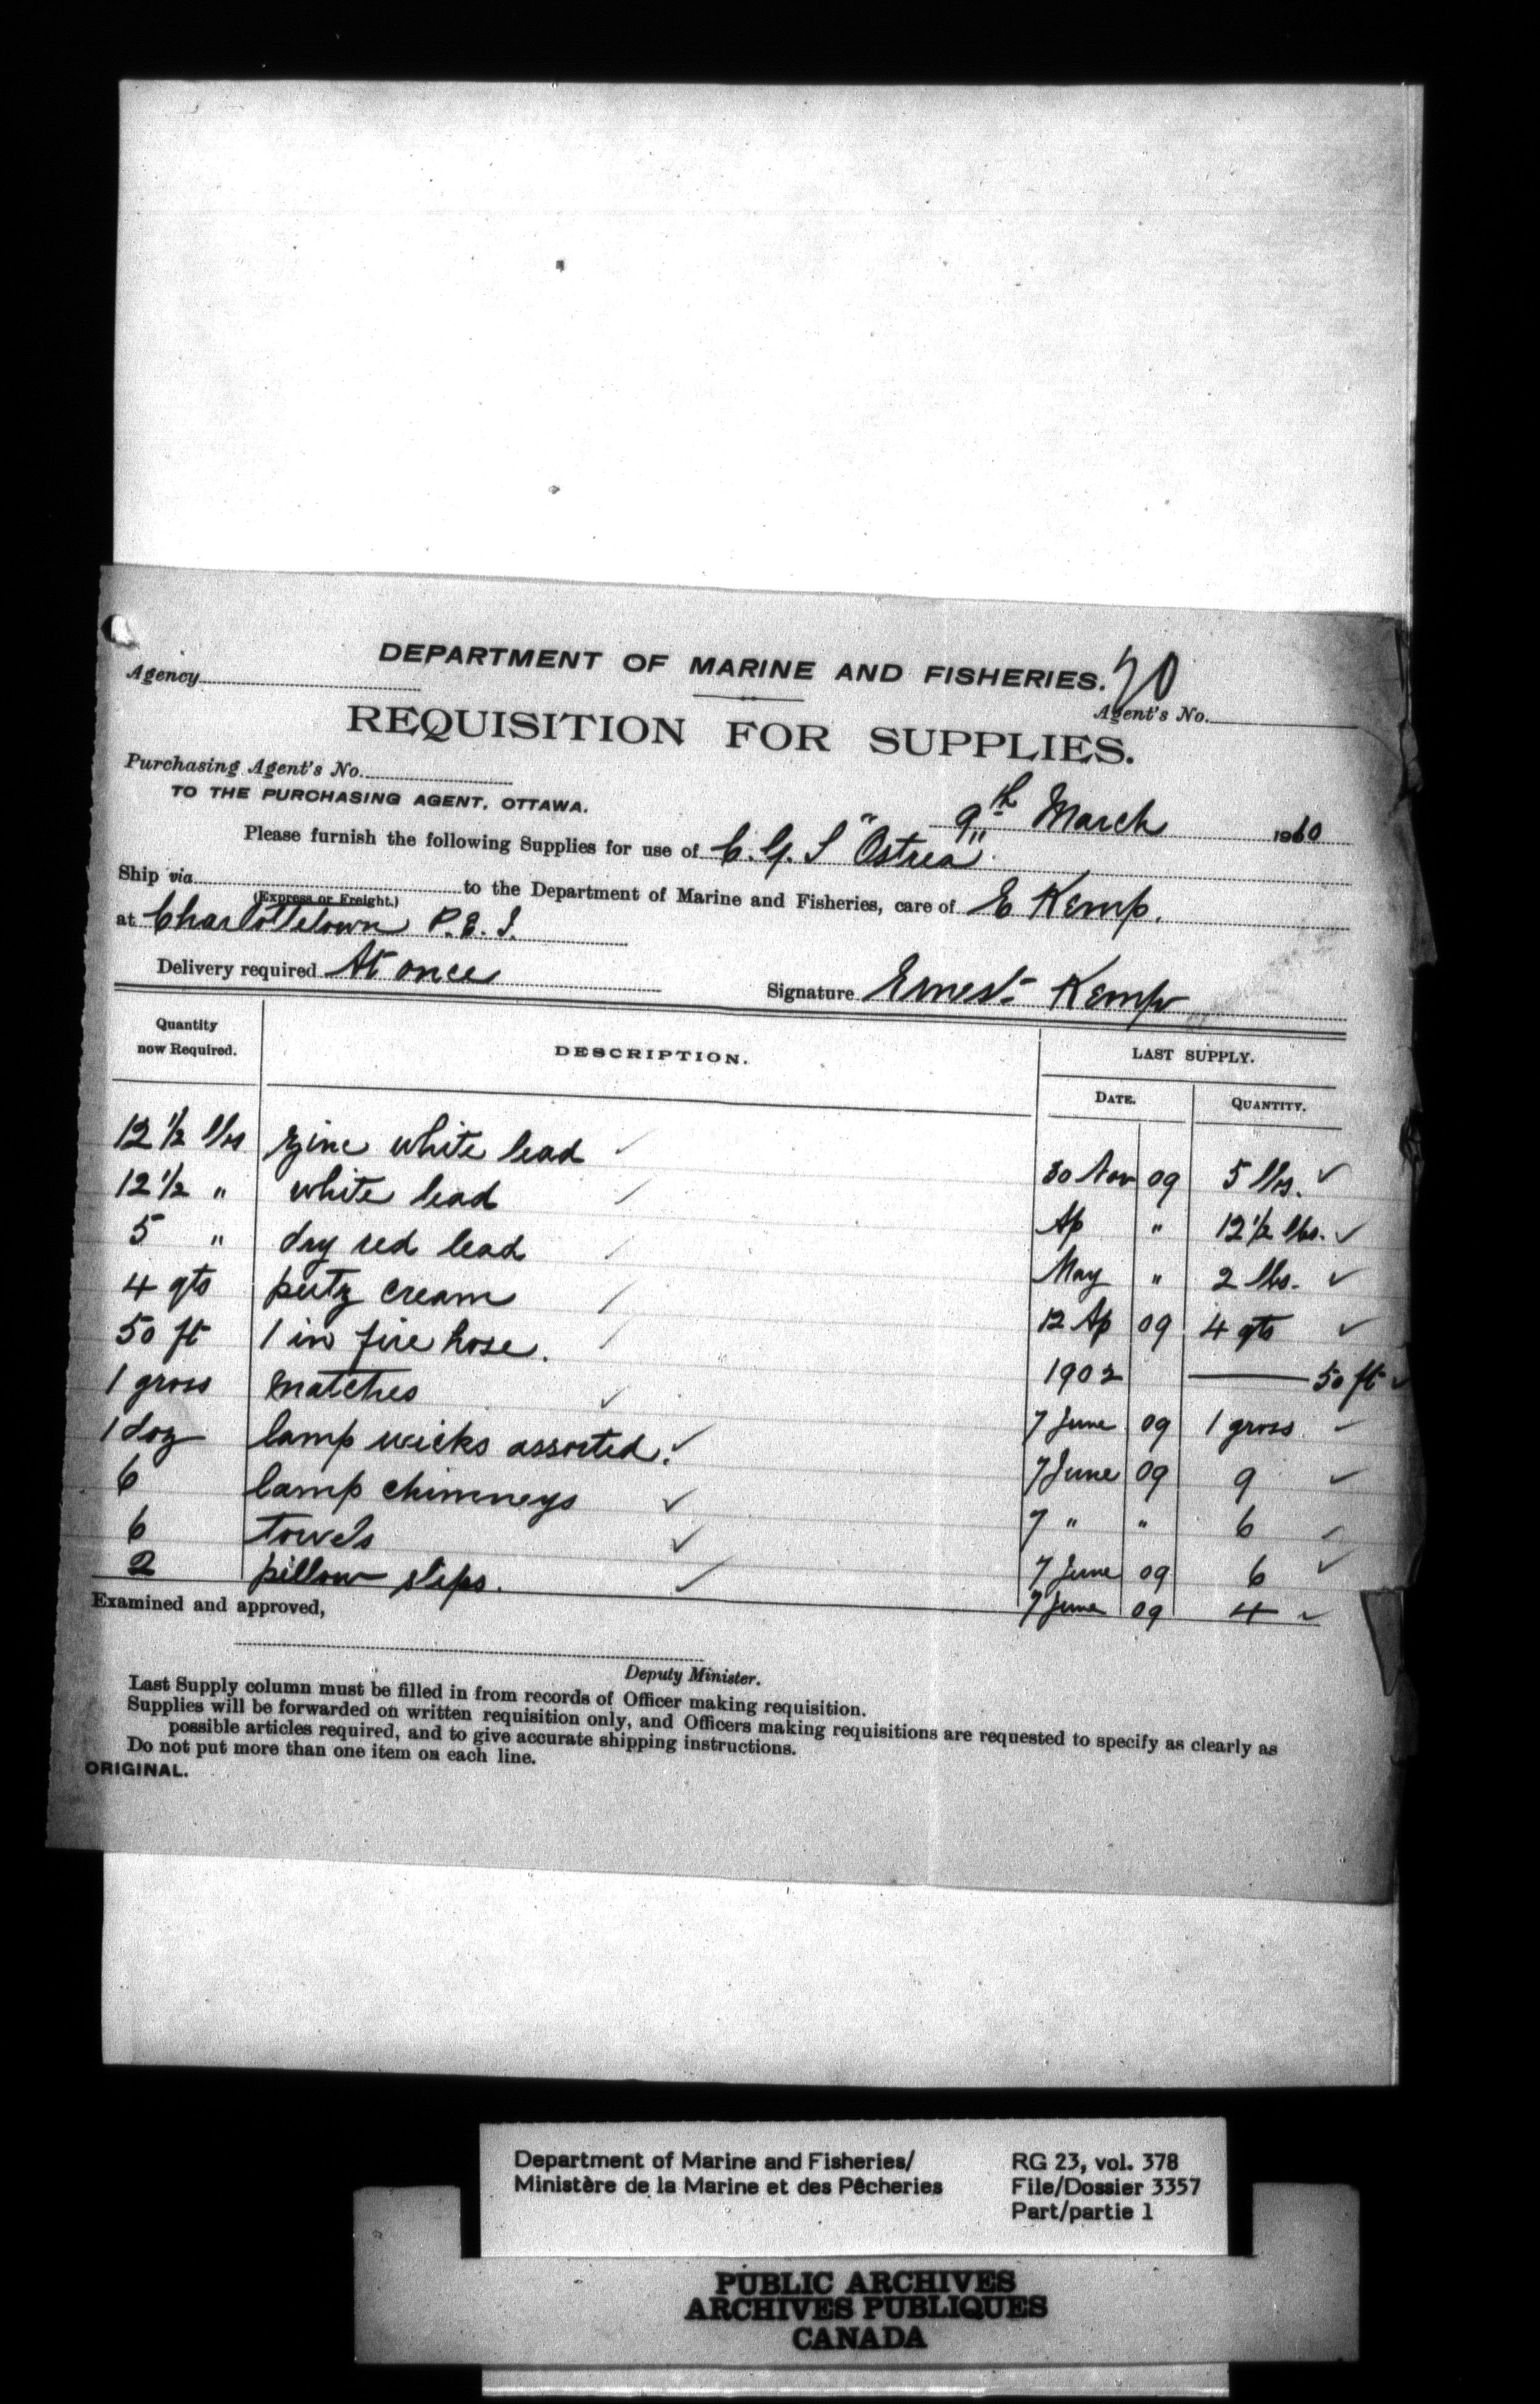 DEPARTMENT OF MARINE AND FISHERIES. 70
Agency
Agent's No.
REQUISITION FOR SUPPLIES.
Purchasing Agent's No.
TO THE PURCHASING AGENT, OTTAWA.
9th March 1910
Please furnish the following Supplies for use of C. G. S "Ostrea"
Ship via to the Department of Marine and Fisheries, care of E Kemp.
(Express or Freight.)
at Charlottetown P.E.I.
Delivery required At once
Signature Ernest Kemp
Quantity now Required. DESCRIPTION. LAST SUPPLY.
DATE. QUANTITY.
12 1/2 lbs zinc white lead ✓ 30 Nov 09 5 lbs. ✓
12 1/2 " white lead / Ap " 12 1/2 lbs. ✓
5 " dry red lead / May " 2 lbs. ✓
4 qts putz cream / 12 Ap 09 4 qts ✓
50 ft 1 in fire hose. / 1902 — 50 ft ✓
1 gross matches ✓ 7 June 09 1 gross ✓
1 doz lamp wicks assorted. ✓ 7 June 09 9 ✓
6 lamp chimneys ✓ 7 " " 6 ✓
6 towels ✓ 7 June 09 6 ✓
2 pillow slips. ✓ 7 June 09 4 ✓
Examined and approved,
Deputy Minister.
Last Supply column must be filled in from records of Officer making requisition.
Supplies will be forwarded on written requisition only, and Officers making requisitions are requested to specify as clearly as
possible articles required, and to give accurate shipping instructions.
Do not put more than one item on each line.
ORIGINAL.
Department of Marine and Fisheries/ RG 23, vol. 378
Ministère de la Marine et des Pêcheries File/Dossier 3357
Part/partie 1
PUBLIC ARCHIVES
ARCHIVES PUBLIQUES
CANADA